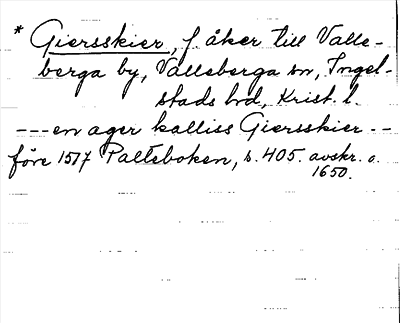 * Giersskier, f. åker till Valle-
berga by, Valleberga sn, Ingel-
stads hd, Krist. l.
--- en ager kalliss Giersskier --
före 1517 Palteboken, s. 405. avskr. o.
1650.